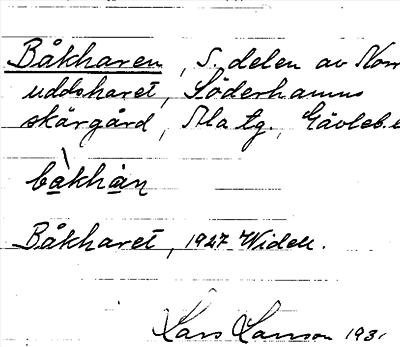 Båkharen, S. delen av Norr
uddsharet, Söderhamns
skärgård, Ala tg., Gävleb. l
båkhån
Båkharet, 1927 Widell.
Lars Larsson 1931